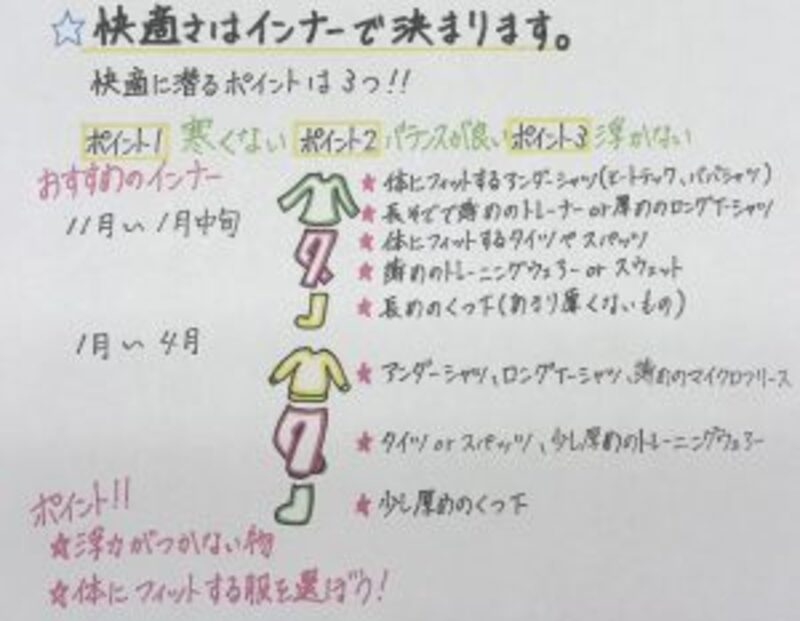 ☆快適さはインナーで決まります。
快適に潜るポイントは3つ!!
ポイント1 寒くない ポイント2 バランスが良い ポイント3 浮かない
おすすめのインナー
11月〜1月中旬
★体にフィットするアンダーシャツ(ヒートテック、パパシャツ)
★長そでで薄めのトレーナーor厚めのロングTーシャツ
★体にフィットするタイツやスパッツ
★薄めのトレーニングウェアーorスウェット
★長めのくつ下(あまり厚くないもの)
1月〜4月
★アンダーシャツ、ロングTーシャツ、薄めのマイクロフリース
★タイツorスパッツ、少し厚めのトレーニングウェアー
★少し厚めのくつ下
ポイント!!
★浮力がつかない物
★体にフィットする服を選ぼう!